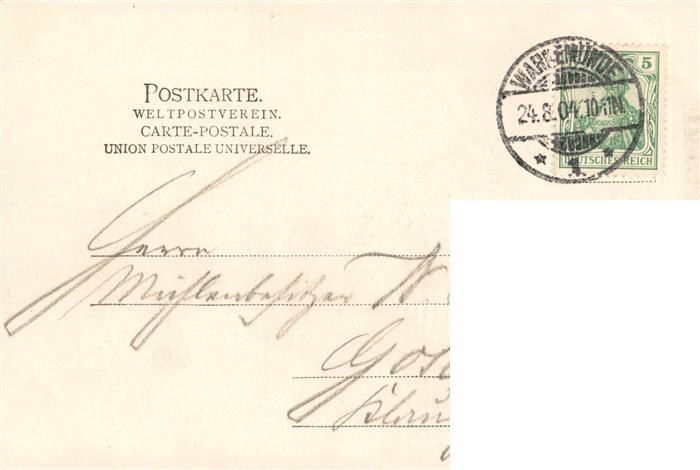 POSTKARTE.
WELTPOSTVEREIN.
CARTE-POSTALE.
UNION POSTALE UNIVERSELLE.
WARNEMÜNDE
24.8.04.10-11N.
* 1 *
5
DEUTSCHES REICH
Herrn
Mühlenbesitzer W.